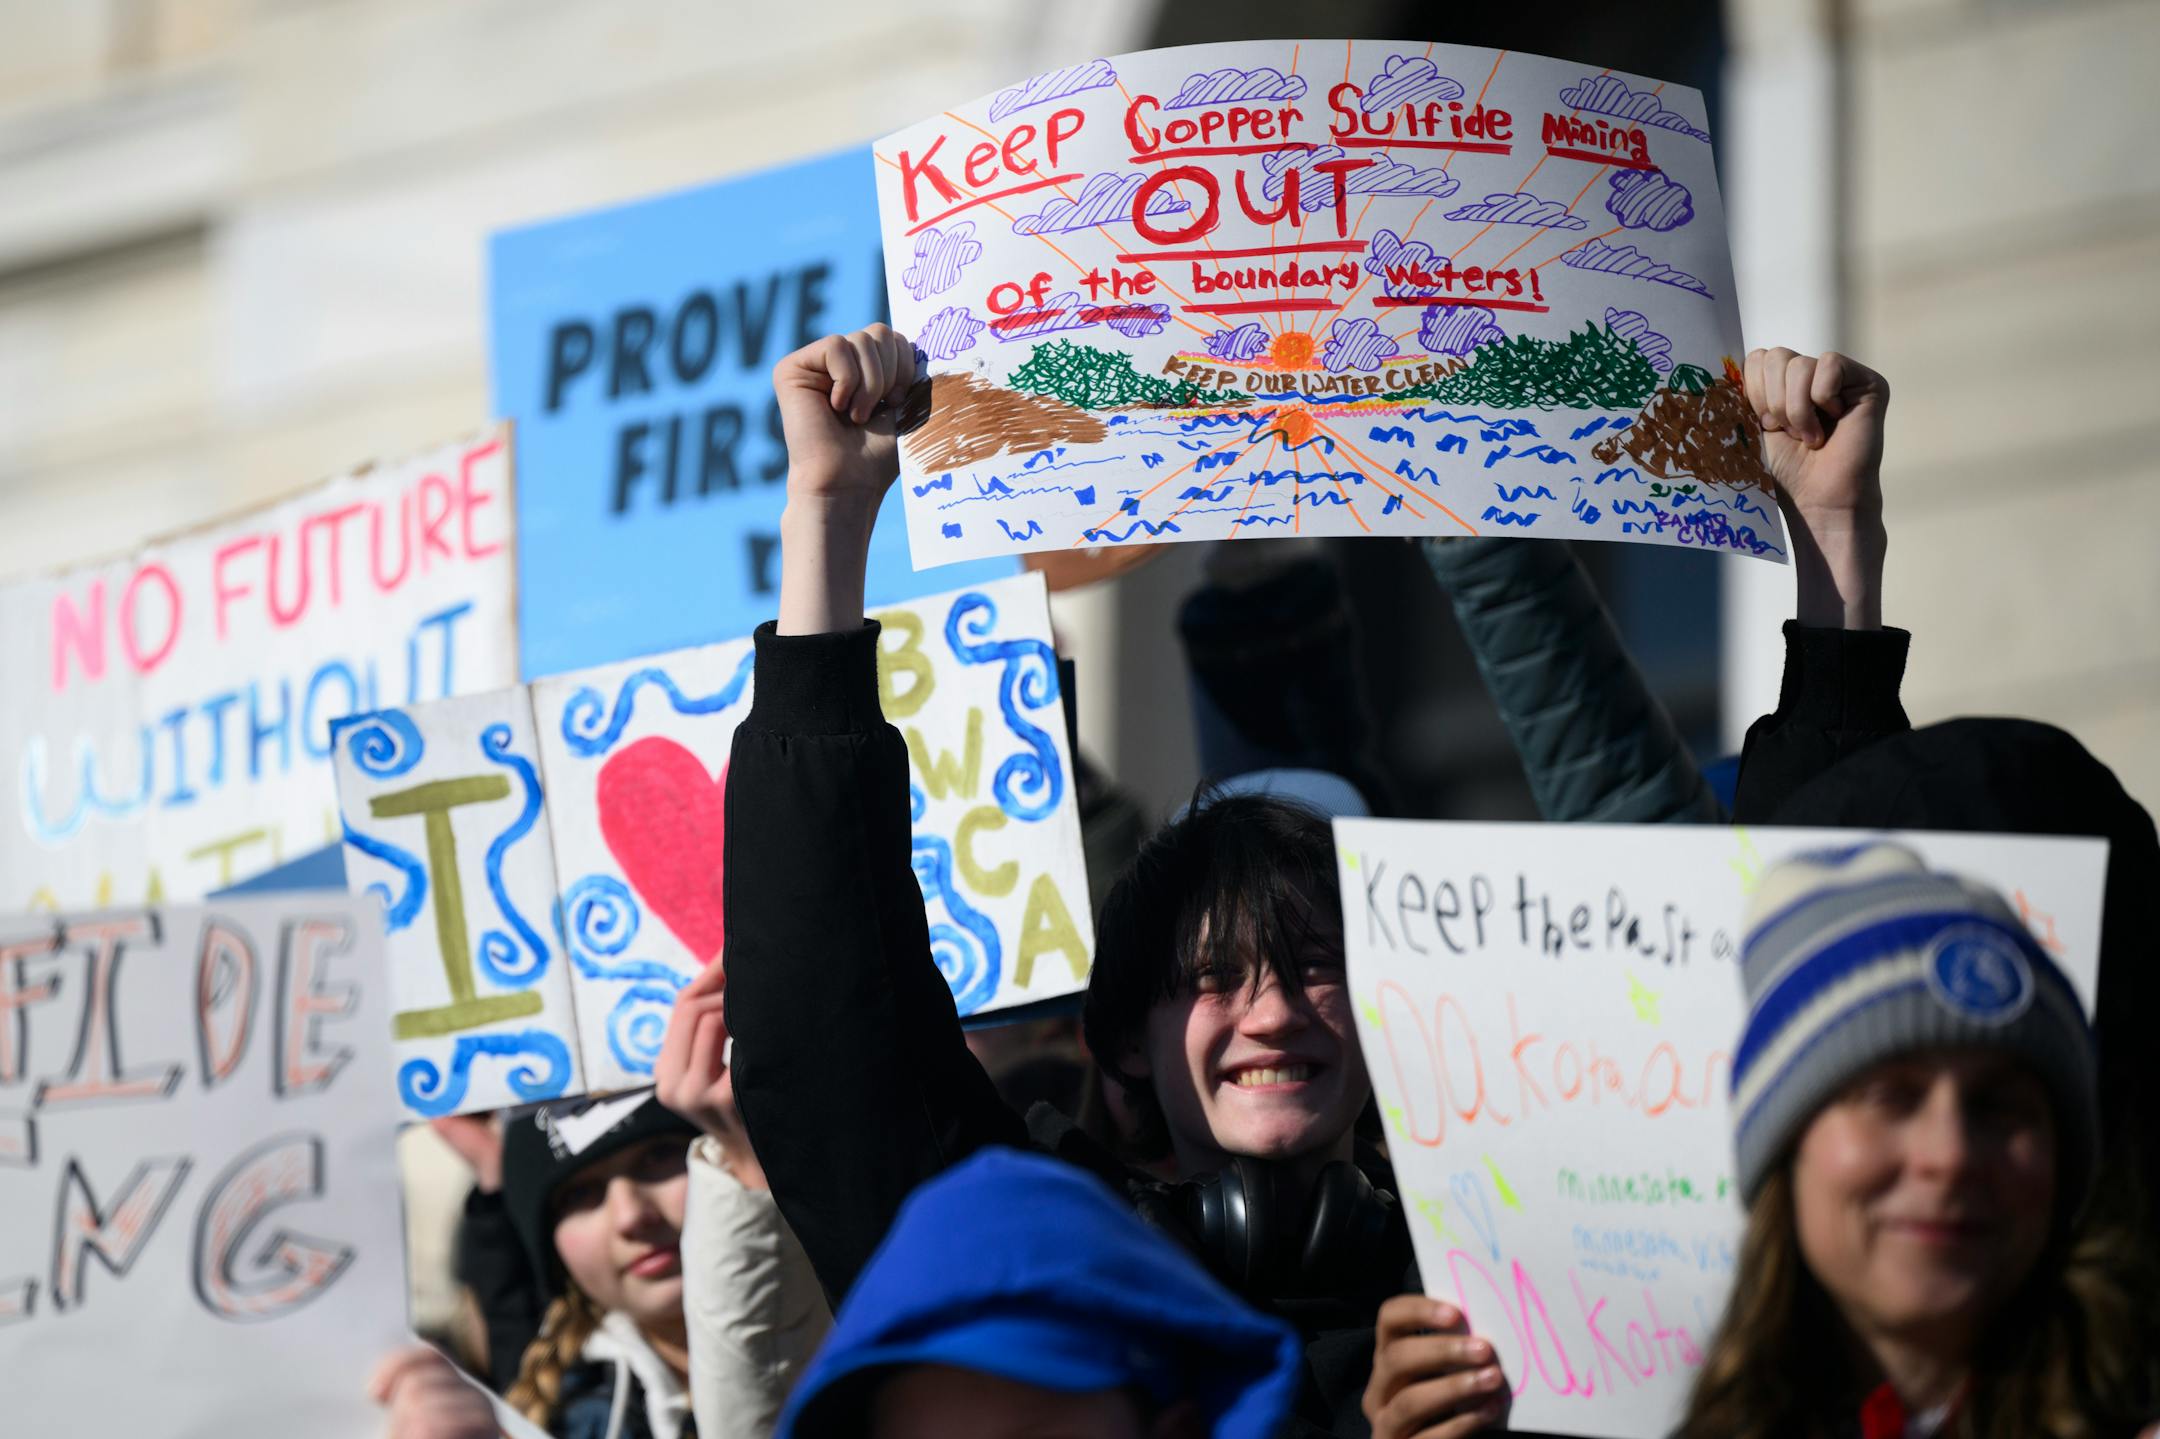 Keep Copper Sulfide Mining
OUT
Of the boundary waters!
KEEP OUR WATER CLEAN
PROVE
FIRS
NO FUTURE
WITHOUT
I
BWCA
FIDE
NG
Keep the Past
Dakota
minnesota
minnesota
Dakota